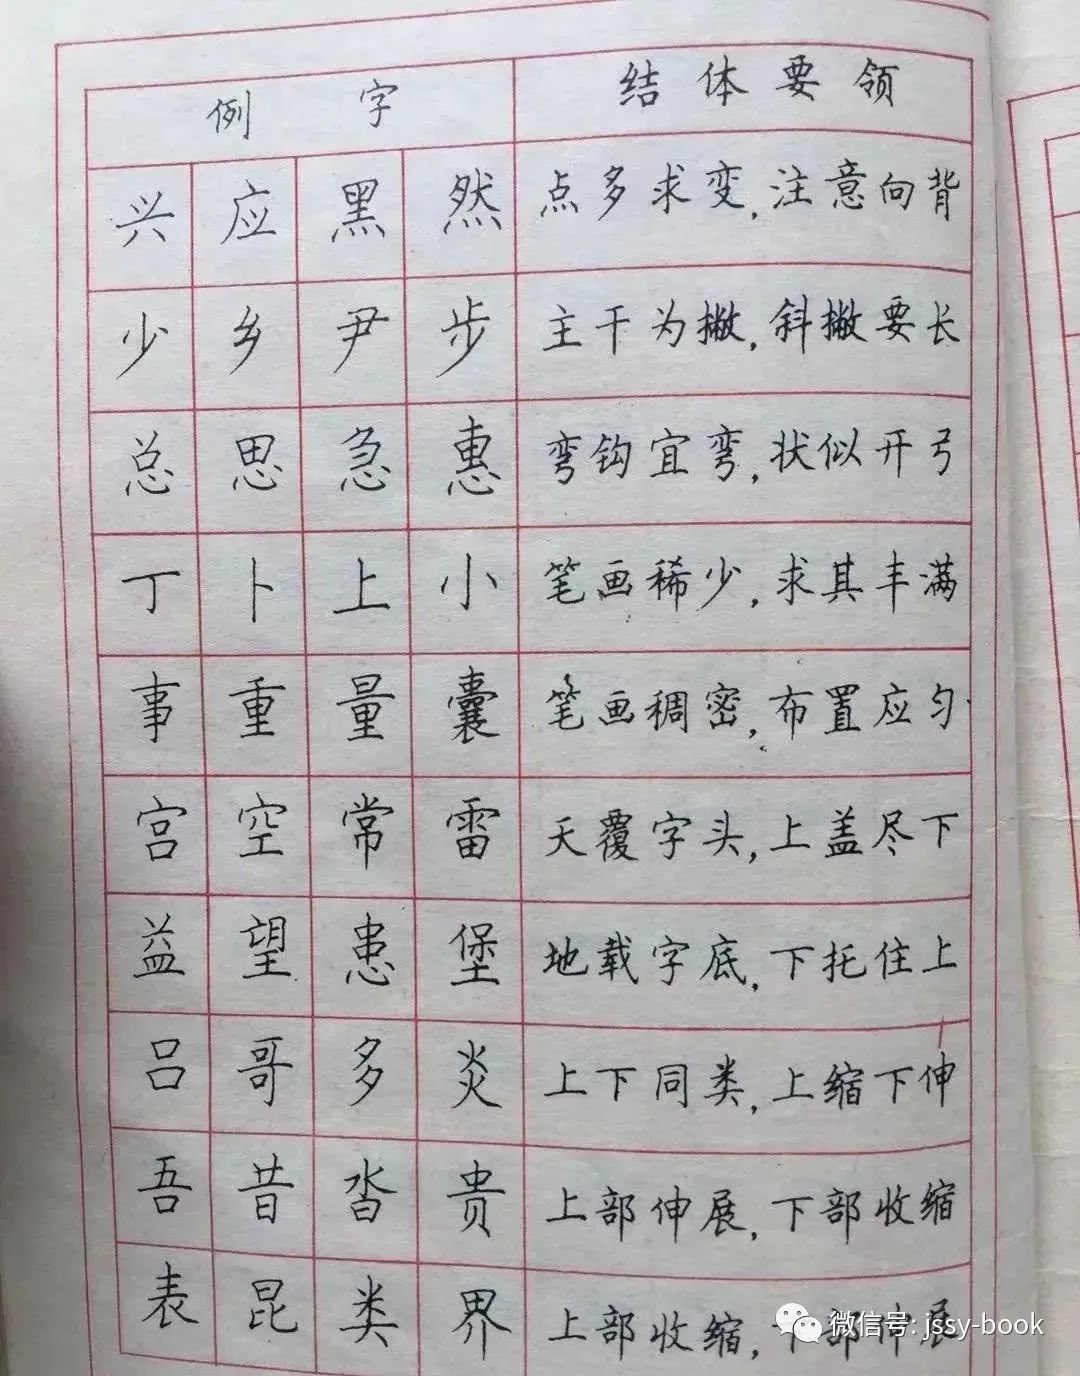 例 字 结体要领
兴 应 黑 然 点多求变,注意向背
少 乡 尹 步 主干为撇,斜撇要长
总 思 急 惠 弯钩宜弯,状似开弓
丁 卜 上 小 笔画稀少,求其丰满
事 重 量 囊 笔画稠密,布置应匀
宫 空 常 雷 天覆字头,上盖尽下
益 望 患 堡 地载字底,下托住上
吕 哥 多 炎 上下同类,上缩下伸
吾 昔 沓 贵 上部伸展,下部收缩
表 昆 类 界 上部收缩,下部伸展
微信号: jssy-book